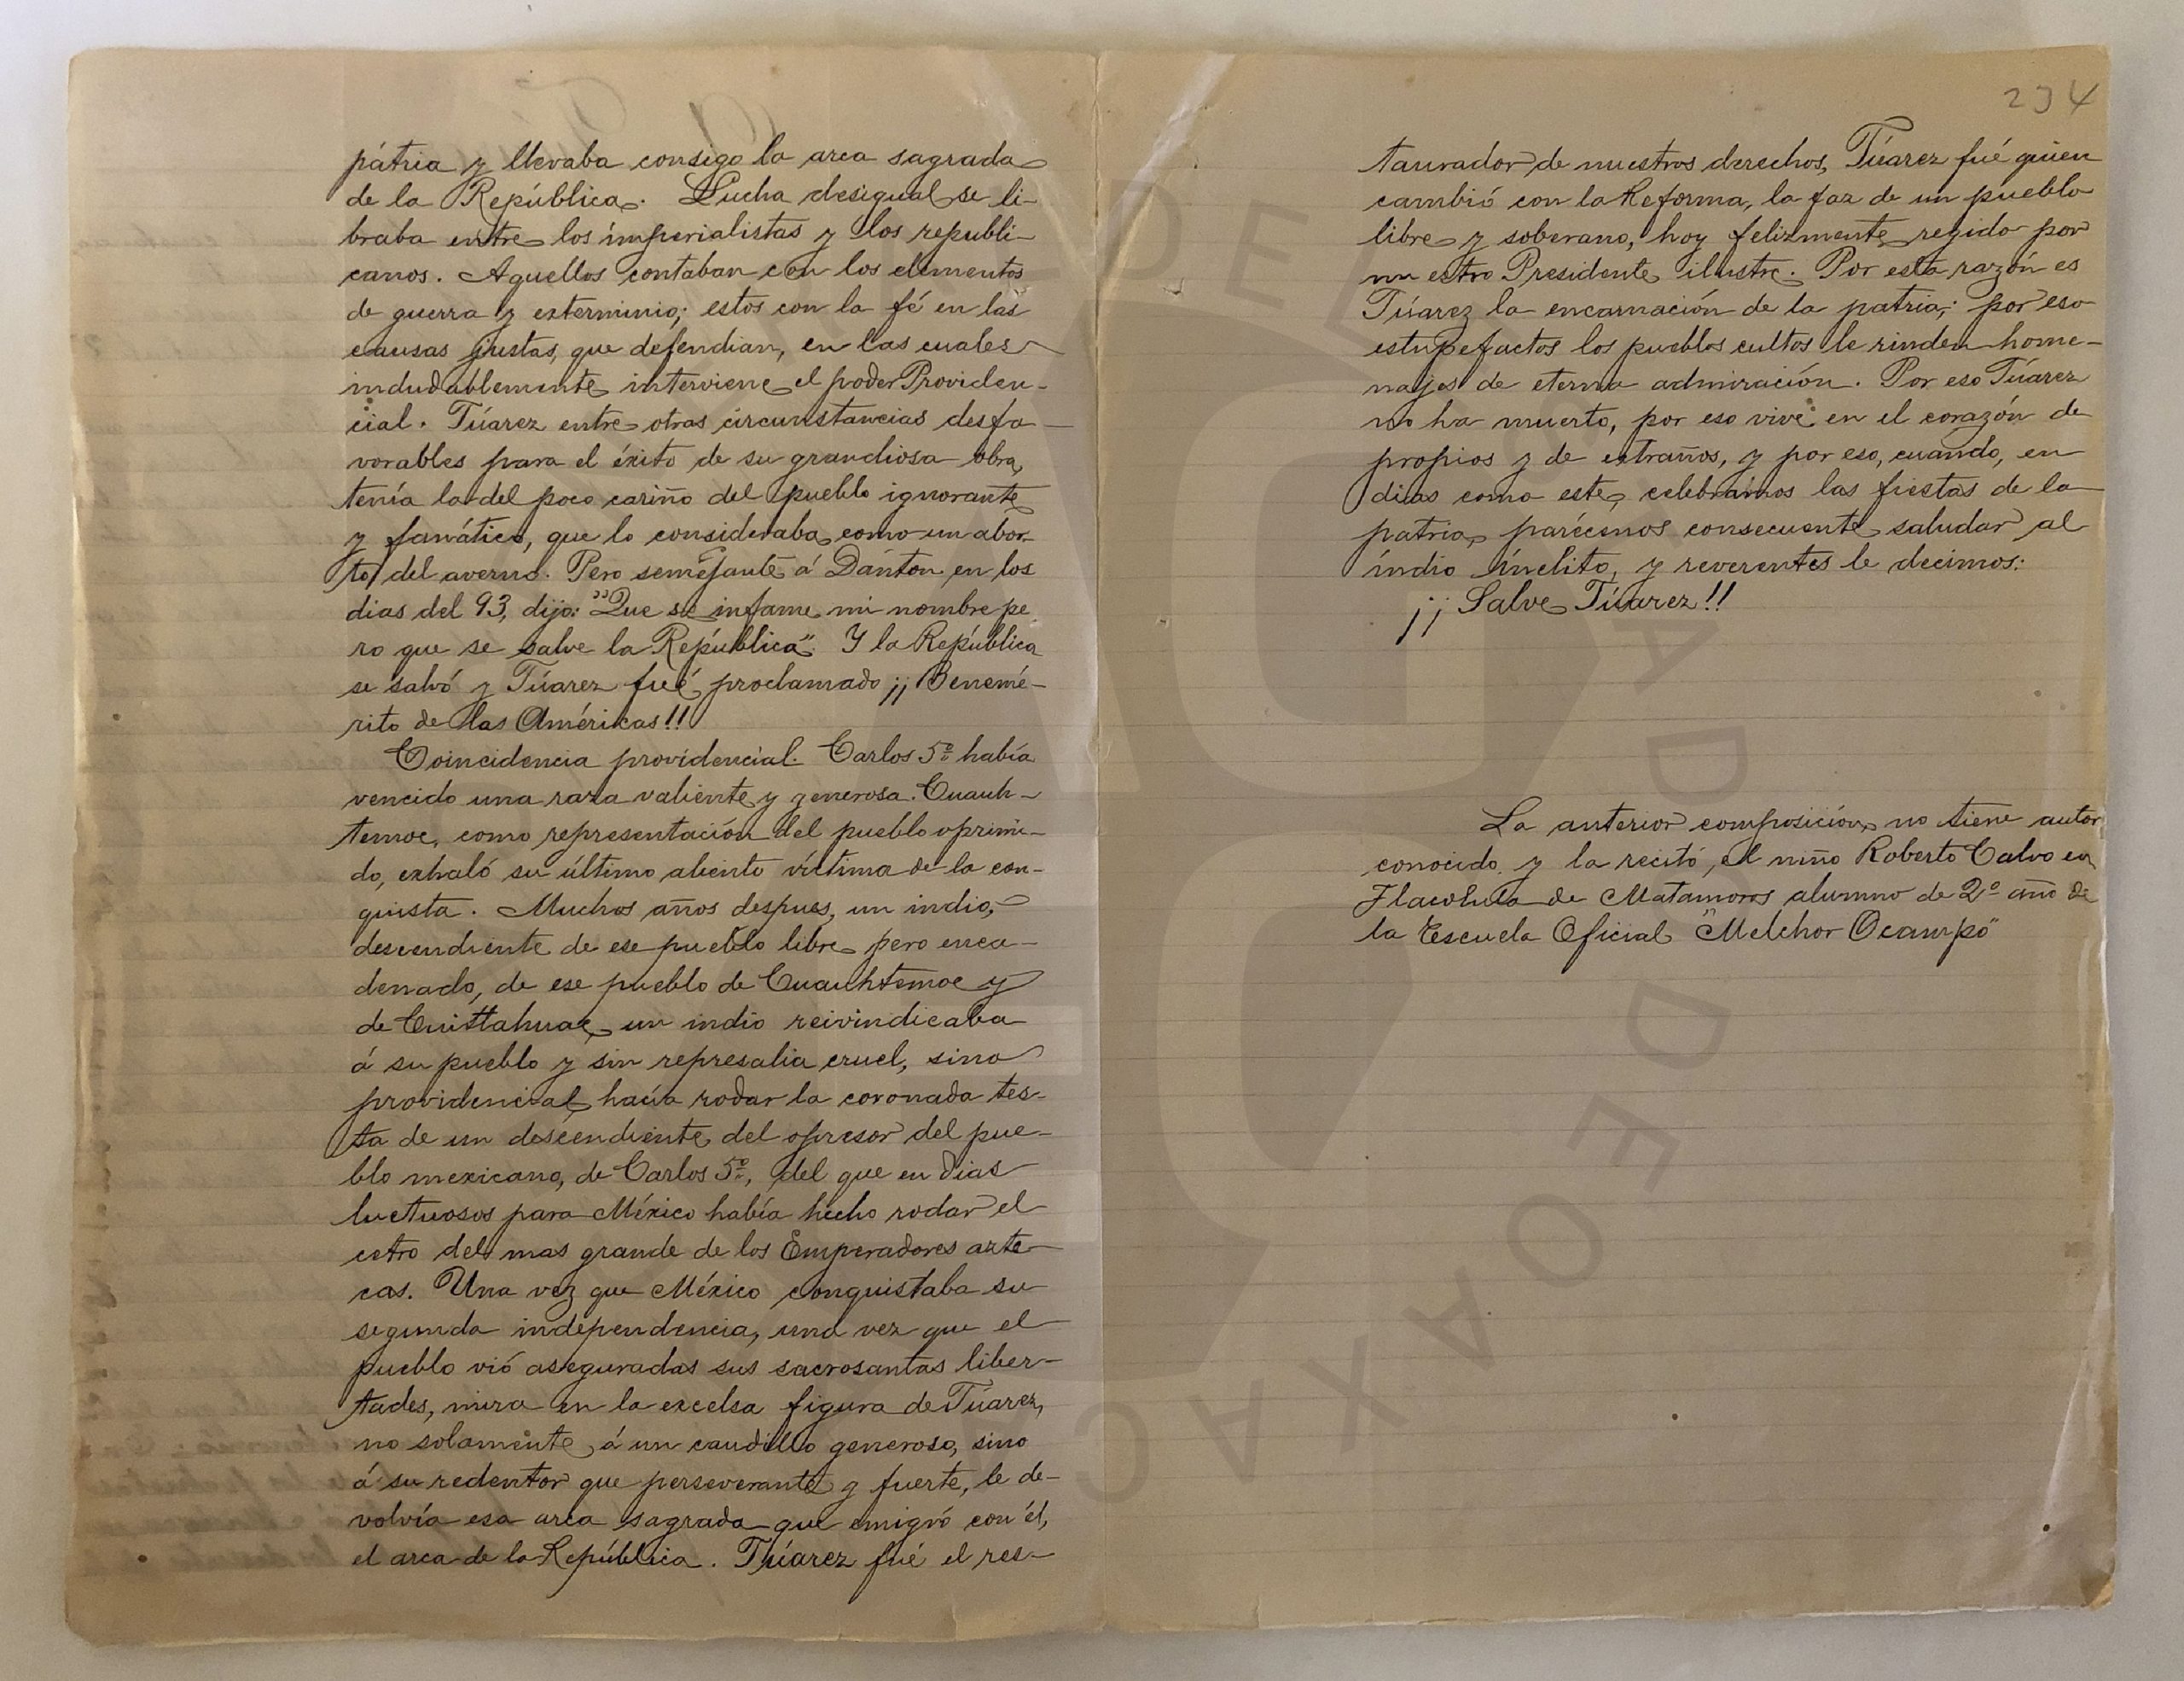 pátria y llevaba consigo la arca sagrada
de la República. Lucha desigual se li-
braba entre los imperialistas y los republi-
canos. Aquellos contaban con los elementos
de guerra y exterminio; estos con la fé en las
causas justas, que defendian, en las cuales
indudablemente interviene el poder Providen-
cial. Júarez entre otras circunstancias desfa-
vorables para el éxito de su grandiosa obra,
tenía la del poco cariño del pueblo ignorante
y fanático, que lo consideraba como un abor-
to del averno. Pero semejante á Dánton en los
dias del 93, dijo: "Que se infame mi nombre pe
ro que se salve la República". Y la República
se salvó y Júarez fué proclamado ¡¡Benemé-
rito de las Américas!!
Coincidencia providencial. Carlos 5º había
vencido una raza valiente y generosa. Cuauh-
temoc, como representación del pueblo oprimi-
do, exhaló su último aliento víctima de la con-
quista. Muchos años despues, un indio,
descendiente de ese pueblo libre pero enca-
denado, de ese pueblo de Cuauhtemoc y
de Cuittahuac, un indio reivindicaba
á su pueblo y sin represalia cruel, sino
providencial, hacía rodar la coronada tes-
ta de un descendiente del opresor del pue-
blo mexicano, de Carlos 5º, del que en dias
luctuosos para México había hecho rodar el
cetro del mas grande de los Emperadores azte-
cas. Una vez que México conquistaba su
segunda independencia, una vez que el
pueblo vió aseguradas sus sacrosantas liber-
tades, mira en la excelsa figura de Júarez,
no solamente á un caudillo generoso, sino
á su redentor que perseverante y fuerte, le de-
volvía esa arca sagrada que emigró con él,
el arca de la República. Júarez fué el res-
234
taurador de nuestros derechos, Júarez fué quien
cambió con la Reforma, la faz de un pueblo
libre y soberano, hoy felizmente regido por
nuestro Presidente ilustre. Por esta razón es
Júarez la encarnación de la patria; por eso
estupefactos los pueblos cultos le rinden home-
najes de eterna admiración. Por eso Júarez
no ha muerto, por eso vive en el corazón de
propios y de extraños, y por eso, cuando, en
dias como este, celebramos las fiestas de la
patria, parécenos consecuente saludar al
indio ínclito, y reverentes le decimos:
¡¡Salve Júarez!!
La anterior composición no tiene autor
conocido y la recitó el niño Roberto Calvo en
Tlacolula de Matamoros alumno de 2º año de
la Escuela Oficial "Melchor Ocampo"